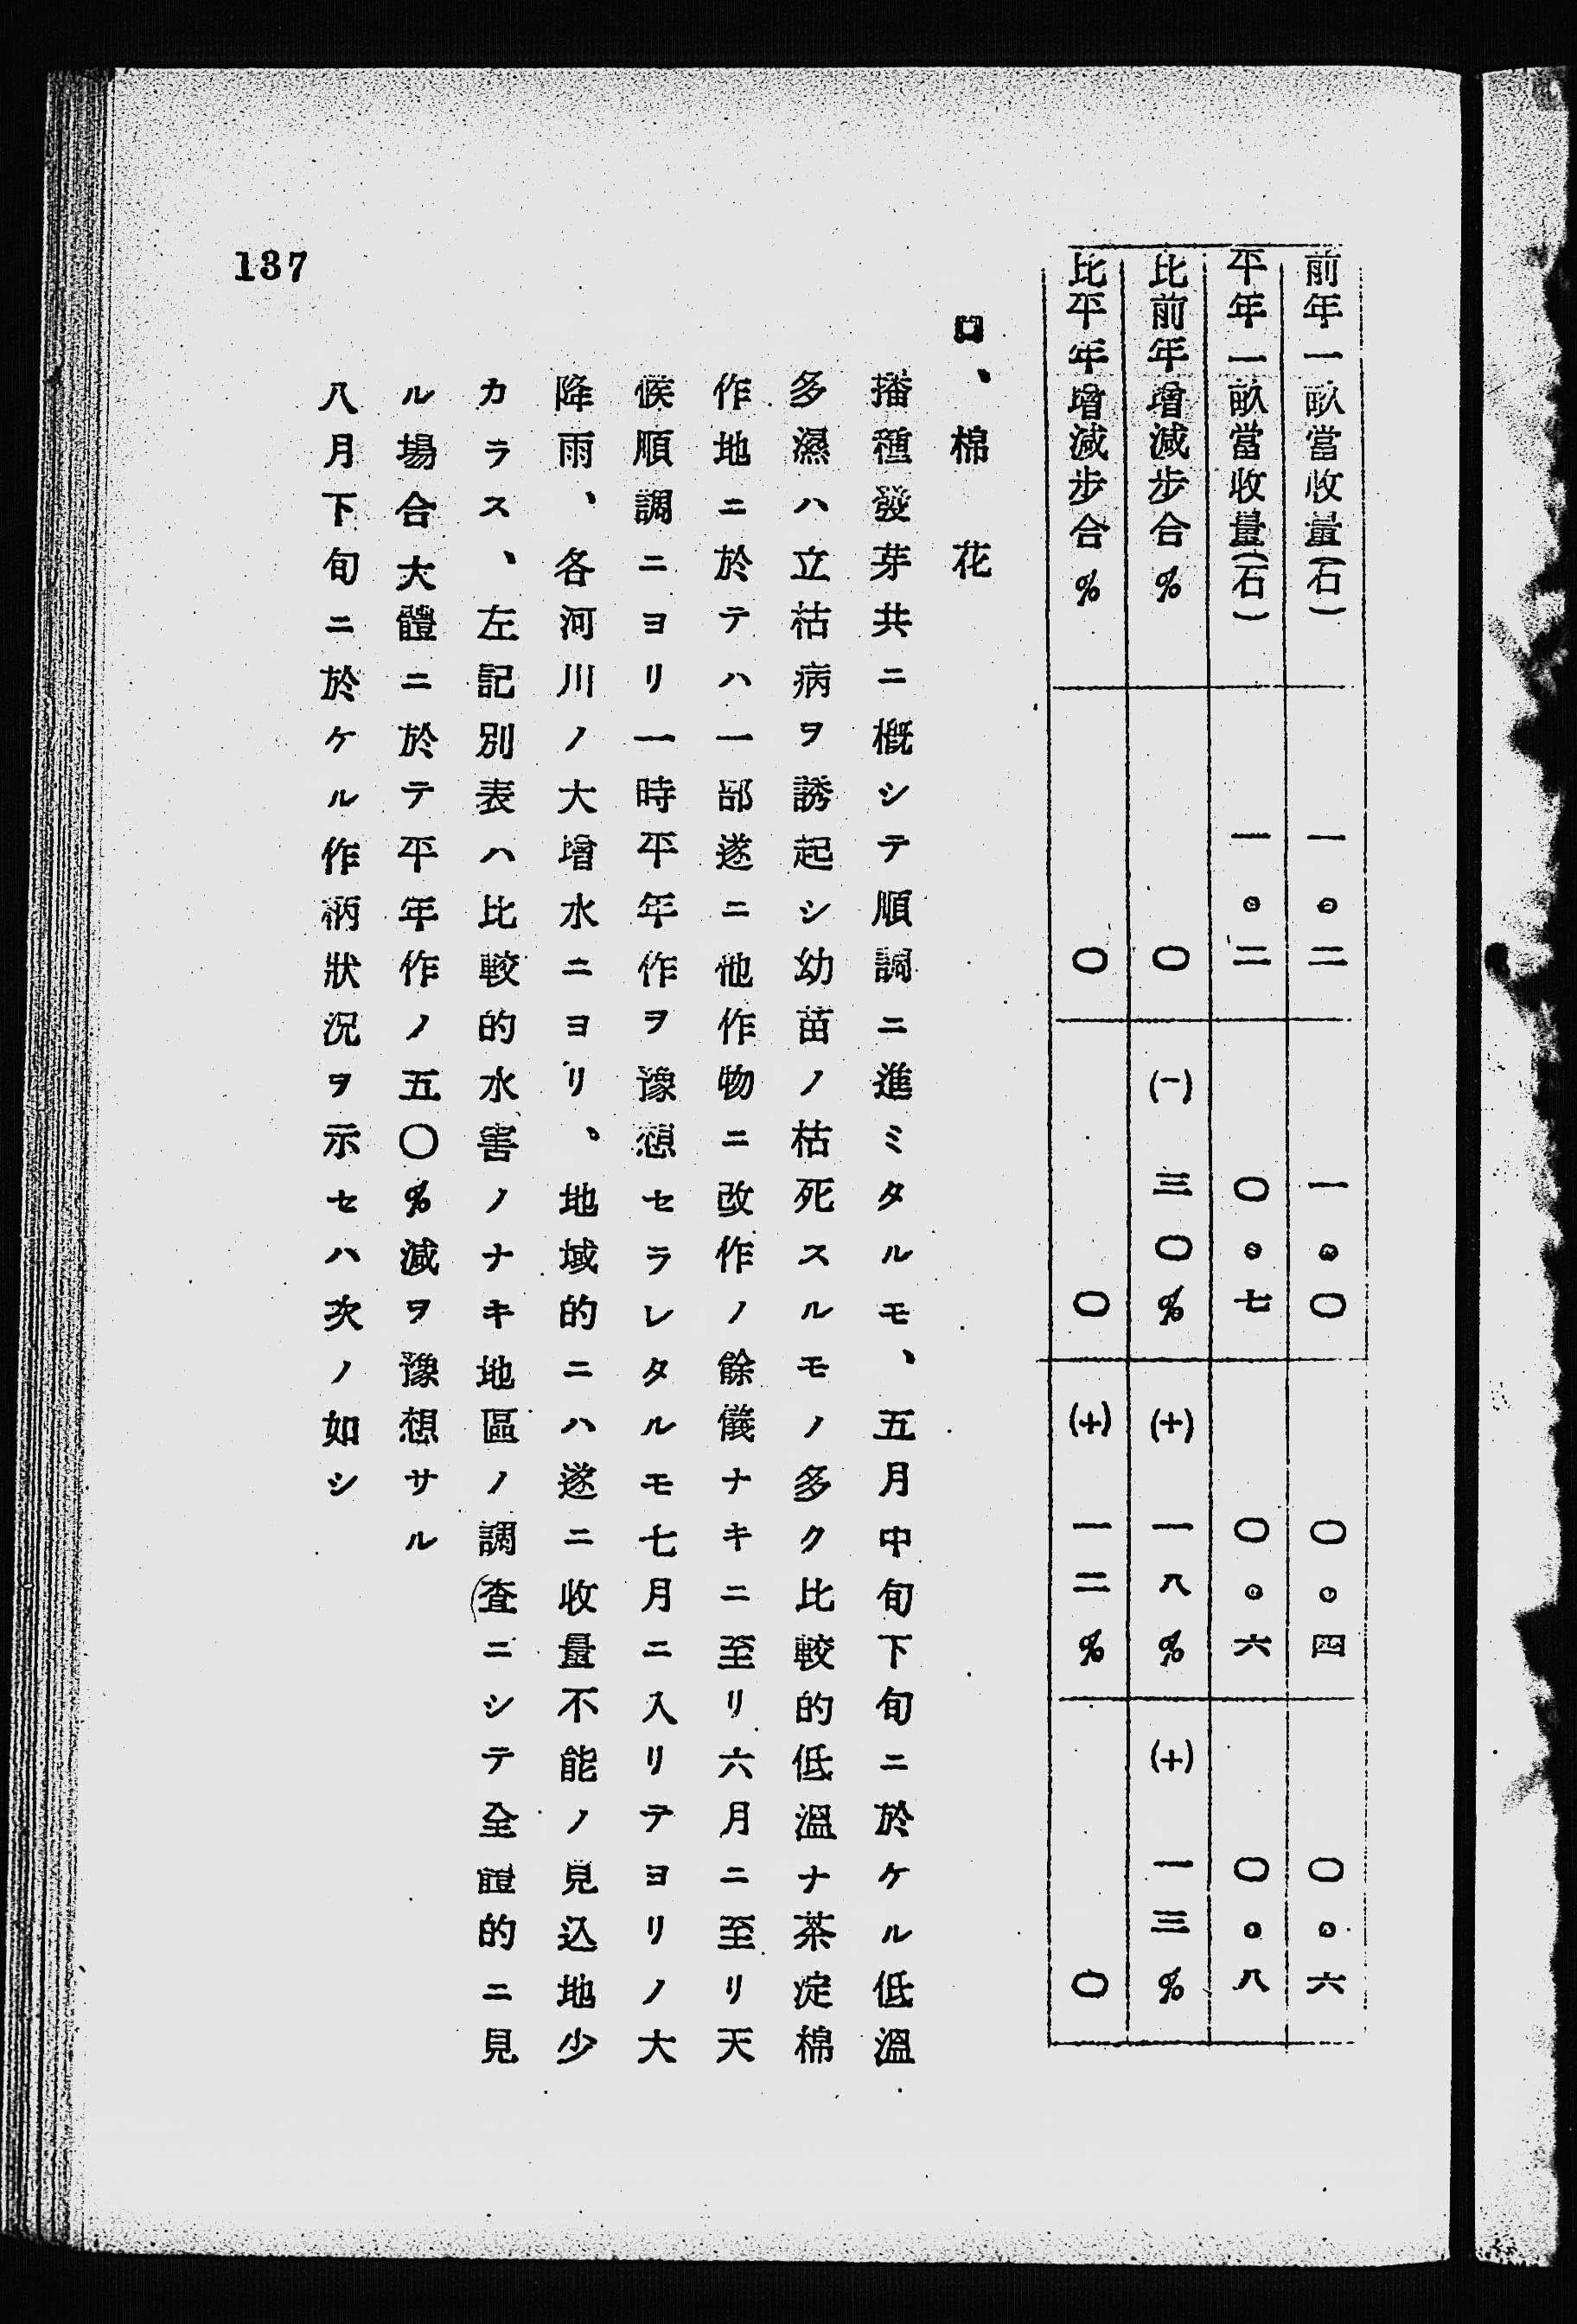 前年一畝當收量(石) 一。二 一。〇 〇。四 〇。六
平年一畝當收量(石) 一。二 〇。七 〇。六 〇。八
比前年增減步合% 〇 (一)三〇% (十)一八% (十)一三%
比平年增減步合% 〇 〇 (十)一二% 〇
ロ、棉花
播種發芽共ニ槪シテ順調ニ進ミタルモ、五月中旬下旬ニ於ケル低溫
多濕ハ立枯病ヲ誘起シ幼苗ノ枯死スルモノ多ク比較的低溫ナ茶淀棉
作地ニ於テハ一部遂ニ他作物ニ改作ノ餘儀ナキニ至リ六月ニ至リ天
候順調ニヨリ一時平年作ヲ豫想セラレタルモ七月ニ入リテヨリノ大
降雨、各河川ノ大增水ニヨリ、地域的ニハ遂ニ收量不能ノ見込地少
カラス、左記別表ハ比較的水害ノナキ地區ノ調査ニシテ全體的ニ見
ル場合大體ニ於テ平年作ノ五〇%減ヲ豫想サル
八月下旬ニ於ケル作柄狀況ヲ示セハ次ノ如シ
137